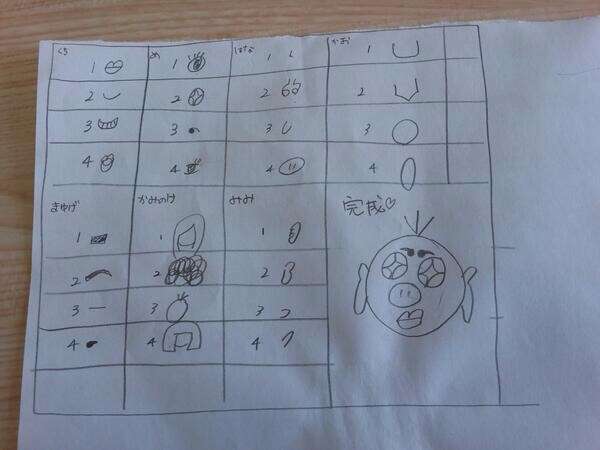 くち め はな かお
1 1 1 1
2 2 2 2
3 3 3 3
4 4 4 4
まゆげ かみのけ みみ 完成♡
1 1 1
2 2 2
3 3 3
4 4 4